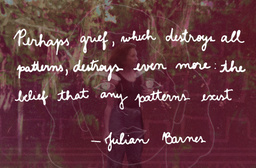 Perhaps grief, which destroys all
patterns, destroys even more: the
belief that any patterns exist
— Julian Barnes